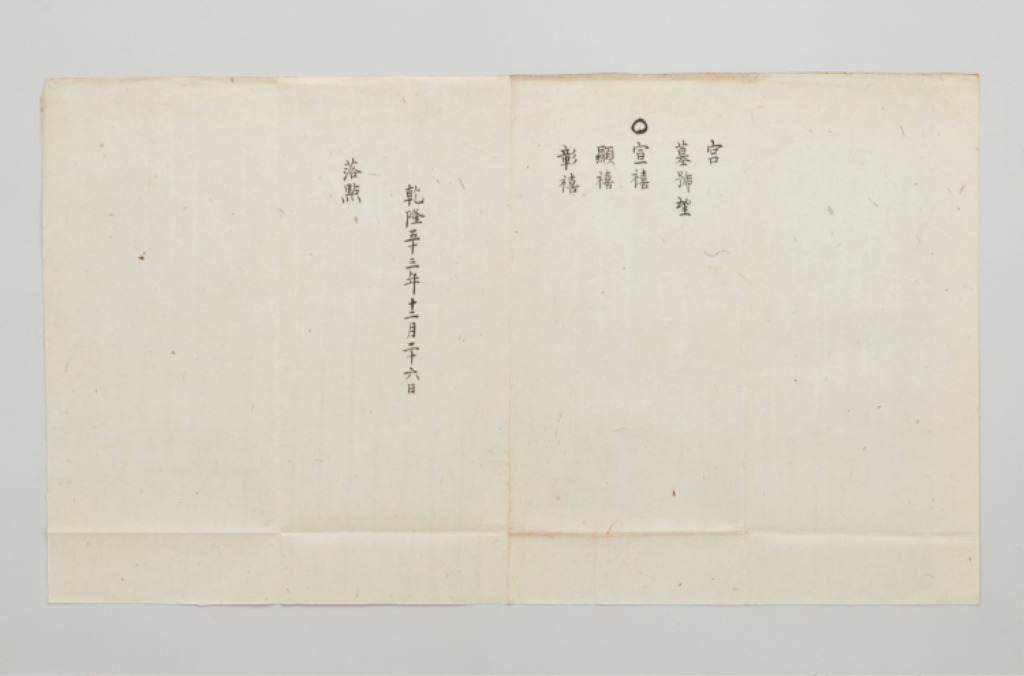 宮
墓號望
宣禧
顯禧
彰禧
乾隆五十三年十二月二十六日
落點